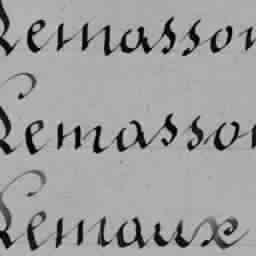 Lemasson
Lemasson
Lemaux